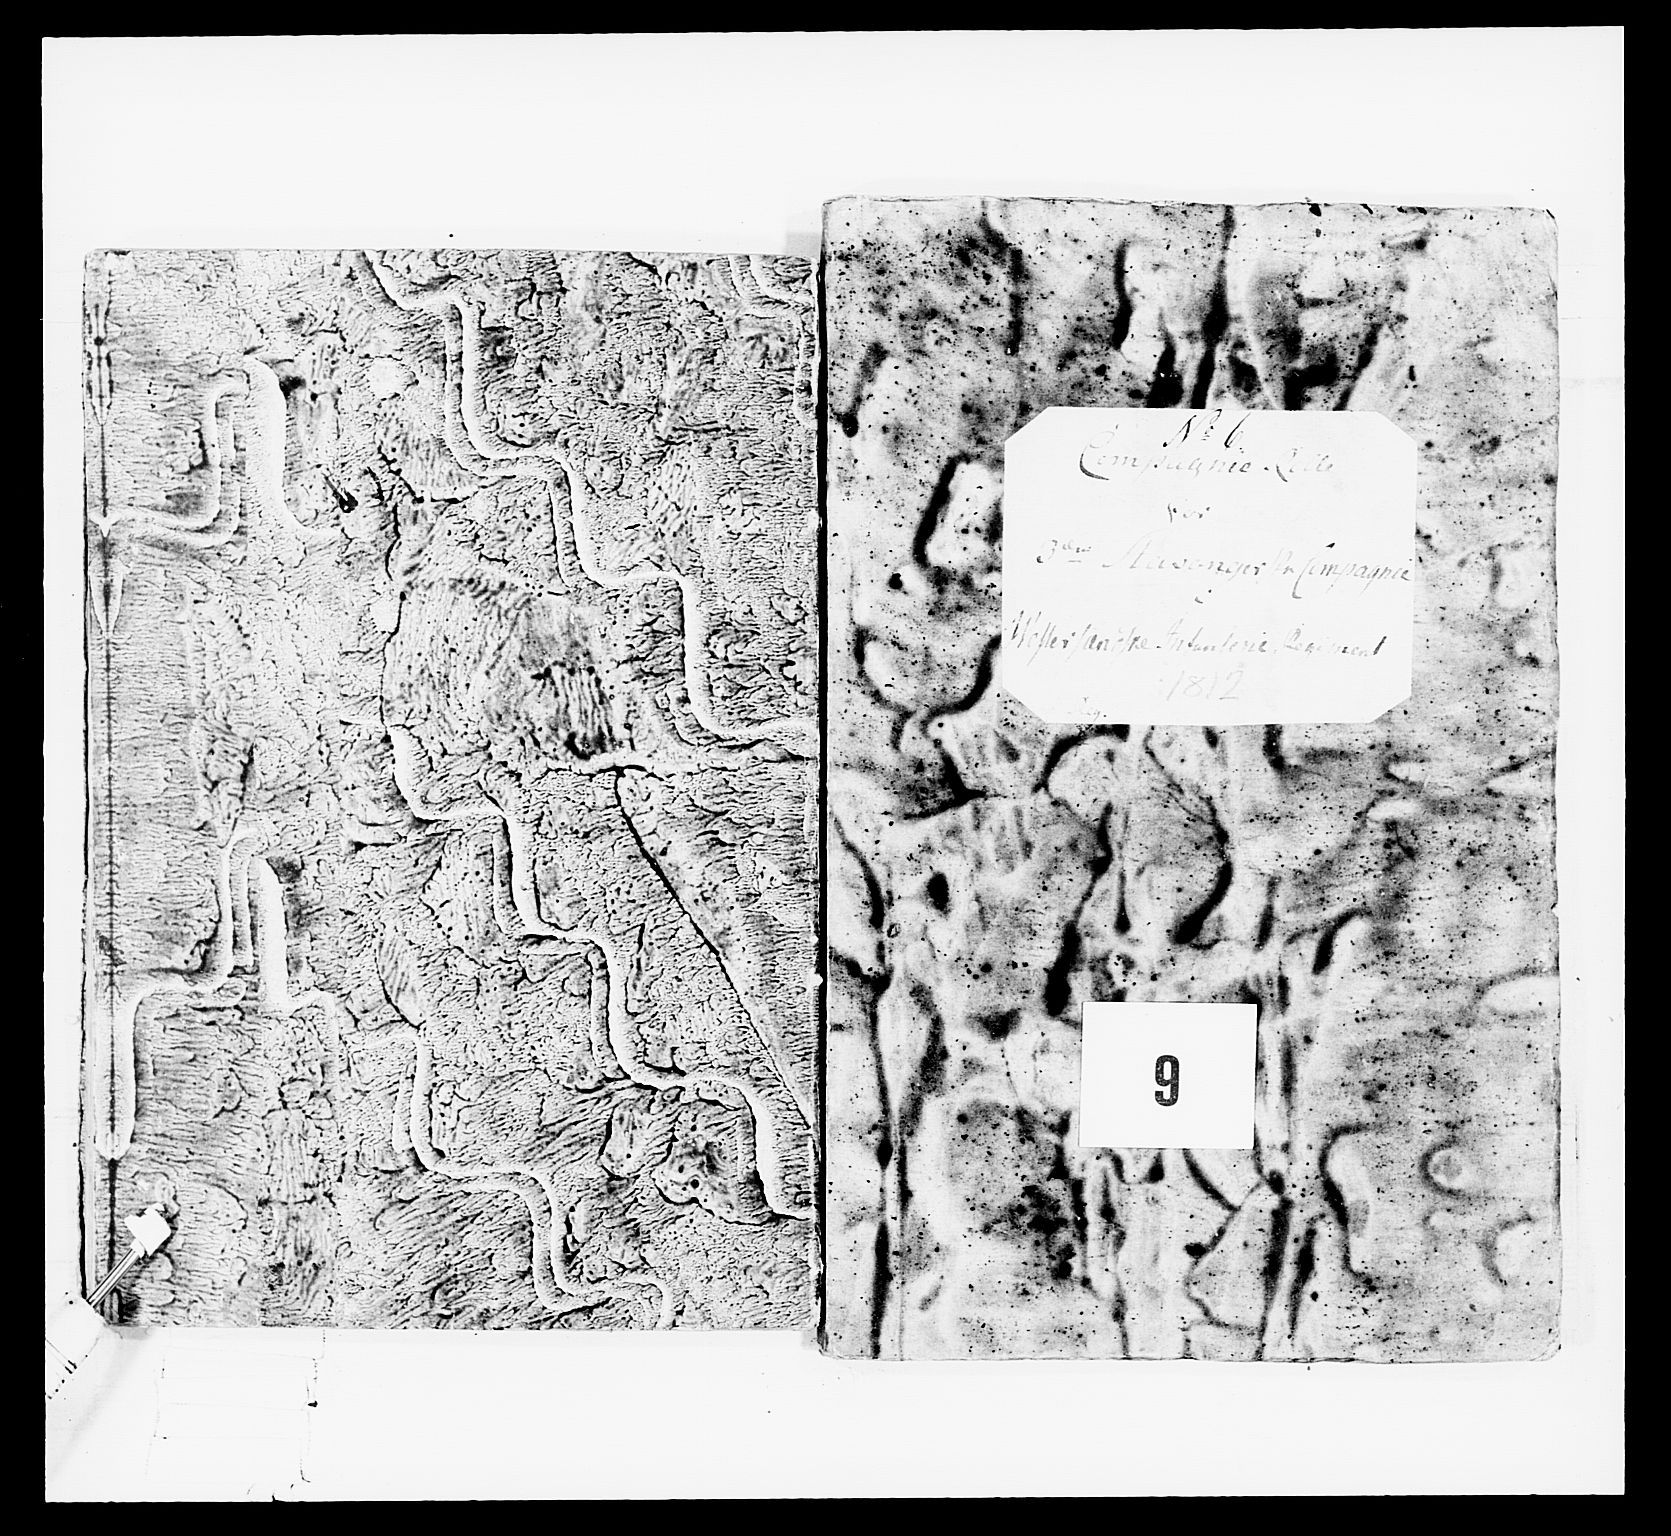 No 6
Compagnie Rulle
for
3die Stavangerske Compagnie
Westerlandske Infanterie Regiment
1812
9